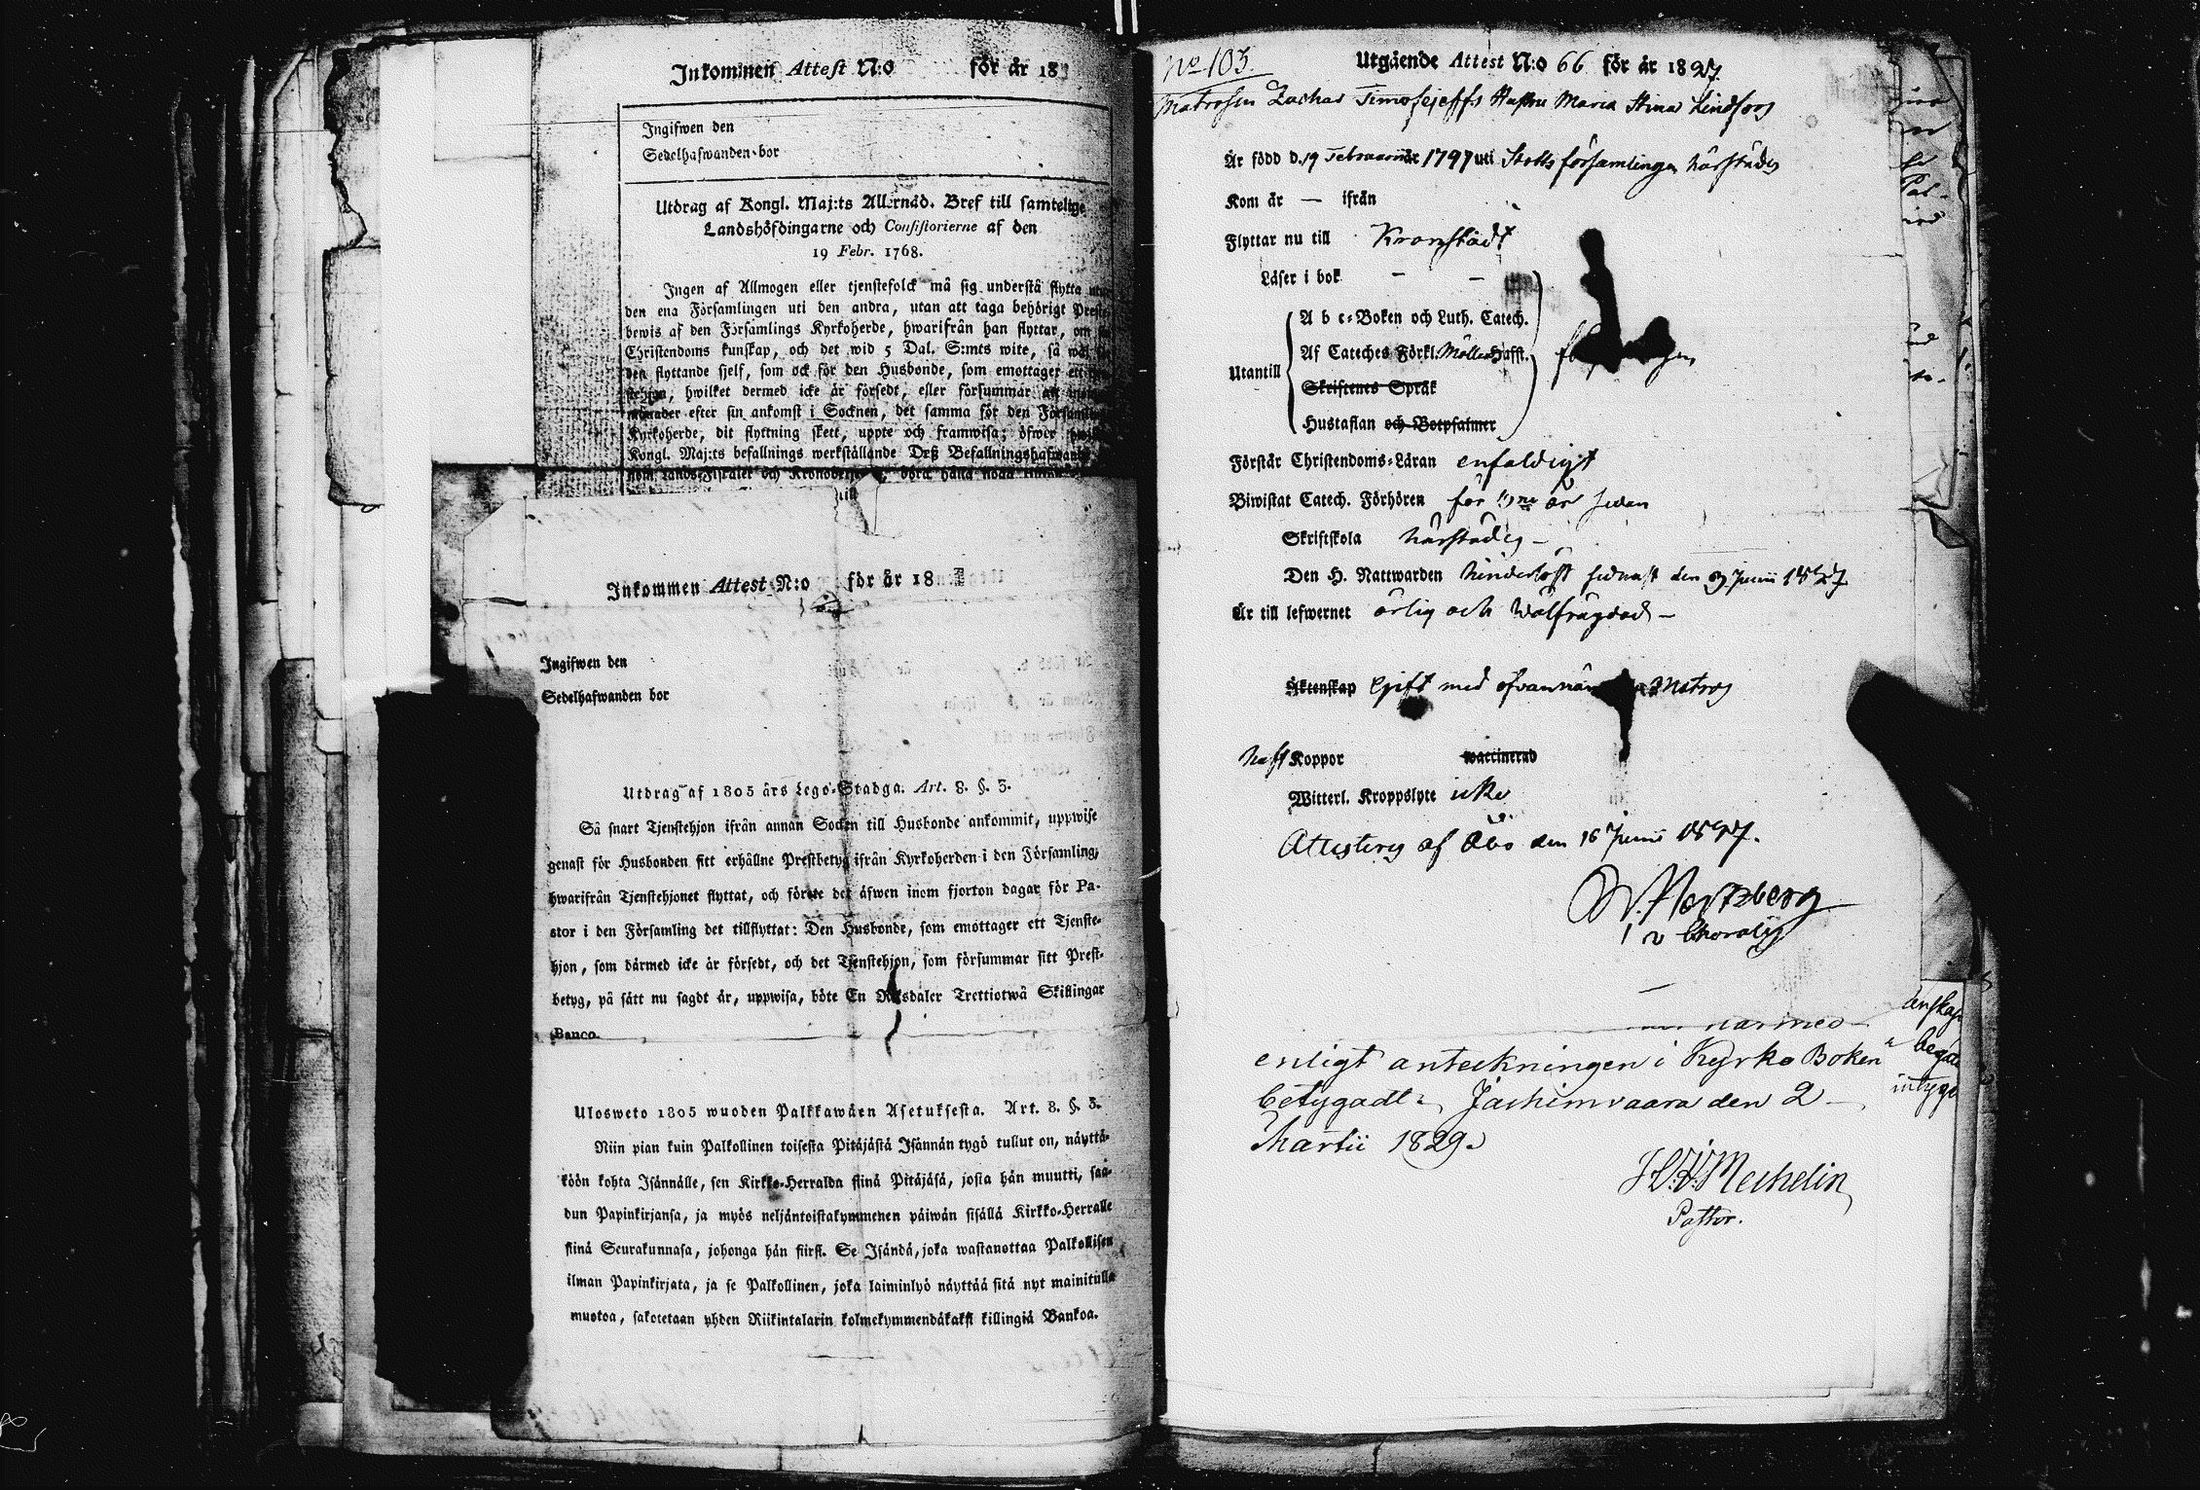 Inkommen Attest N:o för år 18
Ingifwen den
Sedelhafwanden bor
Utdrag af Kongl. Maj:ts Allernåd. Bref till samtelige
Landshöfdingarne och Consistorierne af den
19 Febr. 1768.
Ingen af Allmogen eller tjenstefolck må sig understå flytta
den ena Församlingen uti den andra, utan att taga behörigt
bewis af den Församlings Kyrkoherde, hwarifrån han flyttar, om
Christendoms kunskap, och det wid 5 Dal. S:mts wite, så
den flyttande sjelf, som ock för den Husbonde, som emottager
hwilket dermed icke är försedt, eller försummar
efter sin ankomst i Socknen, det samma för den
Kyrkoherde, dit flyttning skett, uppte och framwisa; öfwer
Kongl. Maj:ts befallnings werkställande Dess
till
Inkommen Attest N:o för år 18
Ingifwen den
Sedelhafwanden bor
Utdrag af 1805 års Lego-Stadga. Art. 8. §. 3.
Så snart Tjenstehjon ifrån annan Socken till Husbonde ankommit, uppwise
genast för Husbonden sitt erhållne Prestbetyg ifrån Kyrkoherden i den Församling,
hwarifrån Tjenstehjonet flyttat, och förete det äfwen inom fjorton dagar för Pa-
stor i den Församling det tillflyttat: Den Husbonde, som emottager ett Tjenste-
hjon, som därmed icke är försedt, och det Tjenstehjon, som försummar sitt Prest-
betyg, på sätt nu sagdt är, uppwisa, böte En Riksdaler Trettiotwå Skillingar
Banco.
Ulosweto 1805 wuoden Palkkawäen Asetuksesta. Art. 8. §. 3.
Niin pian kuin Palkollinen toisesta Pitäjästä Isännän tygö tullut on, näyttä-
köön kohta Isännälle, sen Kirkko-Herralda siinä Pitäjäsä, josta hän muutti, saa-
dun Papinkirjansa, ja myös neljäntoistakymmenen päiwän sisällä Kirkko-Herralle
siinä Seurakunnasa, johonga hän siirst. Se Isändä, joka wastanottaa Palkollisen
ilman Papinkirjata, ja se Palkollinen, joka laiminlyö näyttää sitä nyt mainitulla
muotoa, sakotetaan yhden Riikintalarin kolmekymmendäkaksi killingiä Bankoa.
No 103 Utgående Attest N:o 66 för år 1827
Matrosen Zachar Timofejeffs Hustru Maria Stina Lindfors
Är född d. 19 Februarii år 1797 uti Slotts församlingen härstädes
Kom år — ifrån
Flyttar nu till Kronstadt
Läser i bok — —
A b c-Boken och Luth. Catech.
Af Cateches Förkl. Möllers Hafft.
Utantill
Skriftenes Språk
Hustaflan och Botpsalmer
Förstår Christendoms-Läran enfaldigt
Biwistat Catech. Förhören för år sedan
Skriftskola härstädes —
Den H. Nattwarden hinderlöst sednast den 9 Junii 1827
Är till lefwernet ärlig och wälfrägdad —
Äktenskap Gift med ofvannämnda Matros
haft Koppor waccinerad
Witterl. Kroppslyte icke
Attesteras af Åbo den 16 Junii 1827.
Hertzberg
härmed
enligt anteckningen i Kyrko Boken
betygadt. Jachimvaara den 2
Martii 1829.
Mechelin
Pastor.
begär
intyga